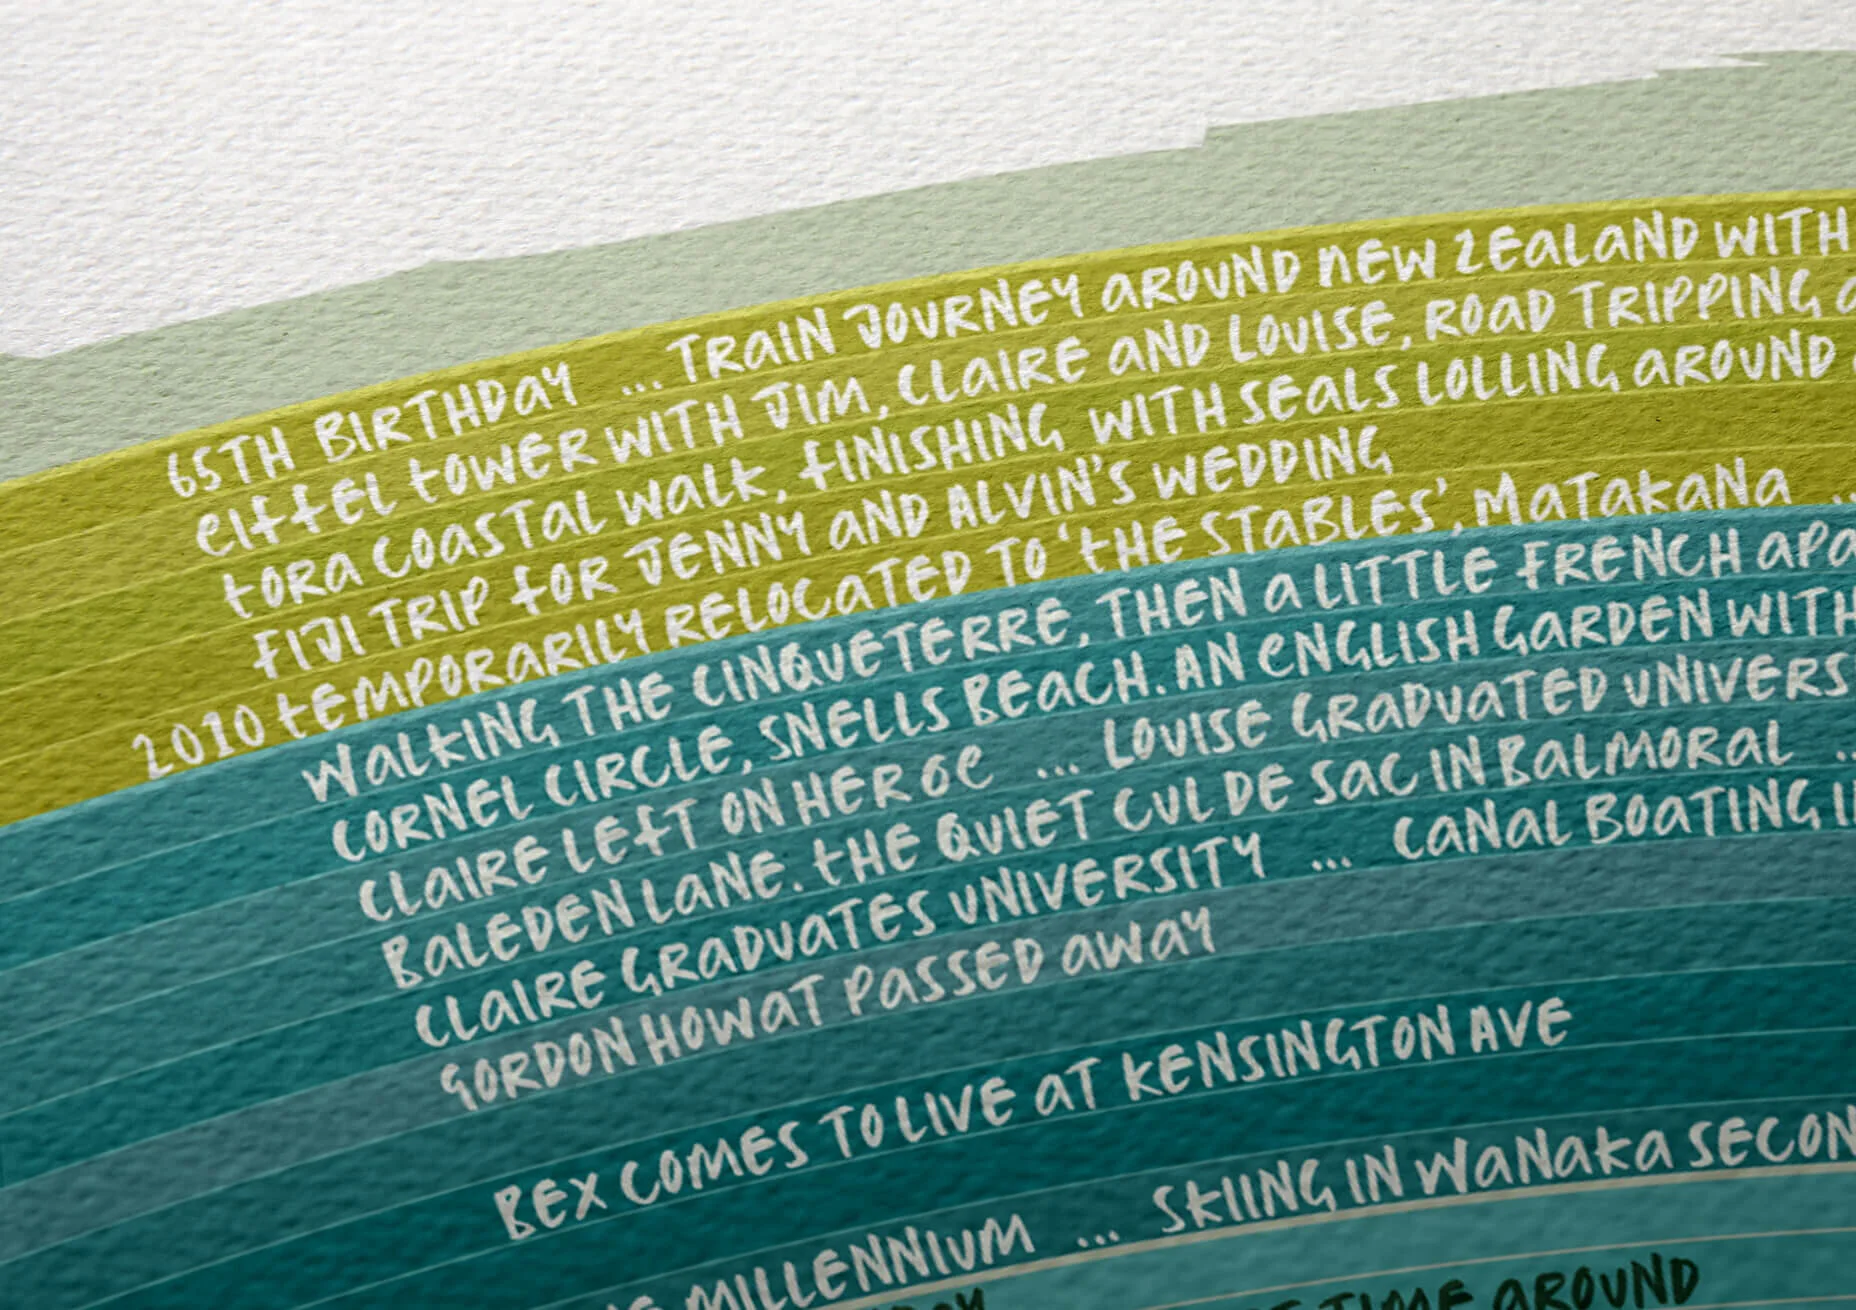 65TH BIRTHDAY ... TRAIN JOURNEY AROUND NEW ZEALAND WITH
EIFFEL TOWER WITH JIM, CLAIRE AND LOUISE, ROAD TRIPPING
TORA COASTAL WALK, FINISHING WITH SEALS LOLLING AROUND
FIJI TRIP FOR JENNY AND ALVIN'S WEDDING
2010 TEMPORARILY RELOCATED TO 'THE STABLES', MATAKANA ...
WALKING THE CINQUETERRE, THEN A LITTLE FRENCH
CORNEL CIRCLE, SNELLS BEACH. AN ENGLISH GARDEN WITH
CLAIRE LEFT ON HER OE ... LOUISE GRADUATED
BALEDEN LANE. THE QUIET CUL DE SAC IN BALMORAL ...
CLAIRE GRADUATES UNIVERSITY ... CANAL BOATING
GORDON HOWAT PASSED AWAY
BEX COMES TO LIVE AT KENSINGTON AVE
MILLENNIUM ... SKIING IN WANAKA
TIME AROUND